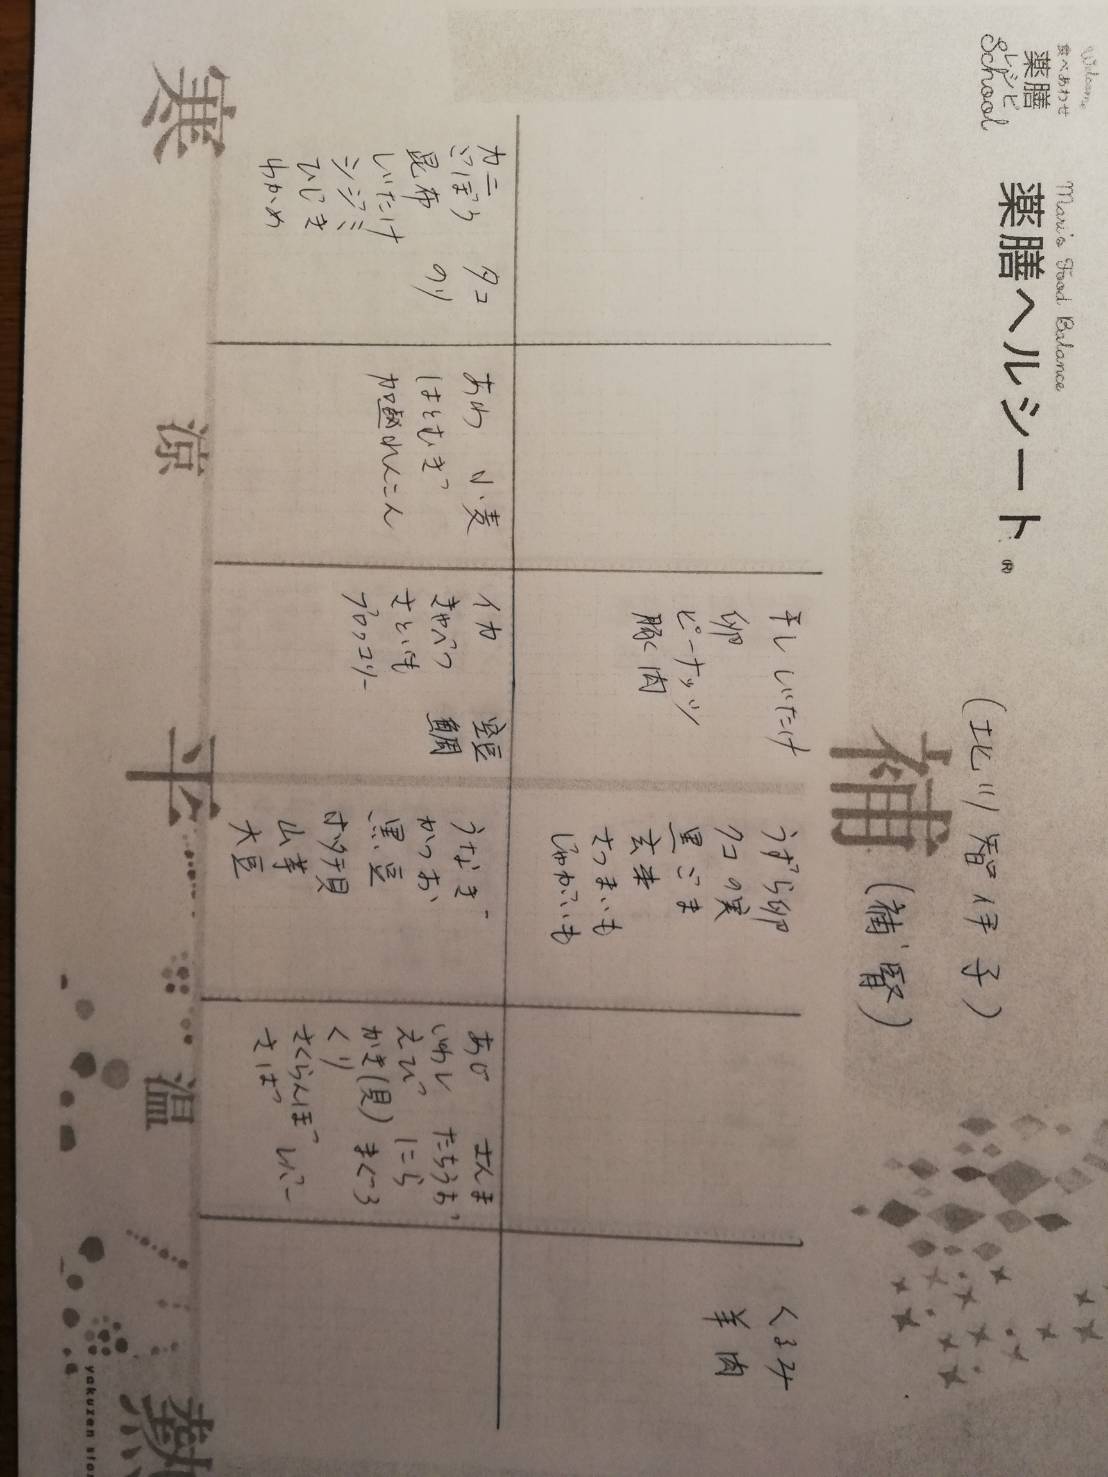 Welcome
食べあわせ
薬膳
レシピ
School
Mari's Food Balance
薬膳ヘルシート®
(北川智伊子)
補
(補腎)
干ししいたけ
卵
ピーナッツ
豚肉
うずら卵
クコの実
黒ごま
玄米
さつまいも
じゃがいも
くるみ
羊肉
カニ タコ
ごぼう
昆布 のり
しいたけ
シジミ
ひじき
わかめ
あわ 小麦
はとむぎ
加熱れんこん
イカ
きゃべつ 鯛
さといも
ブロッコリー
うなぎ
かつお
黒豆
ホタテ貝
山芋
大豆
あじ さんま
いわし たちうお
えび にら
かき(貝) まぐろ
くり
さくらんぼ レバー
さば
寒
涼
平
温
熱
yakuzen